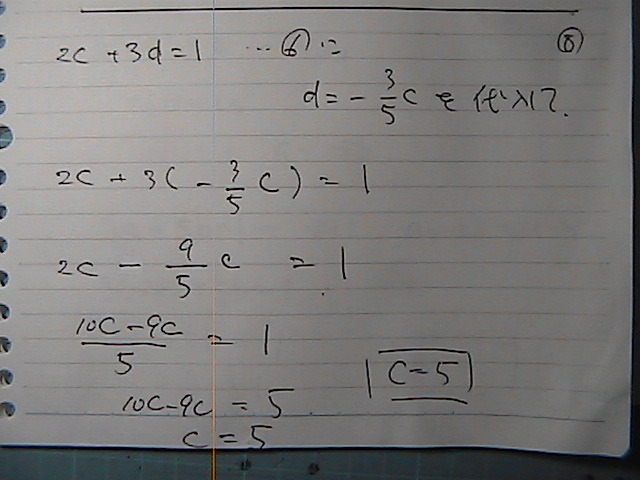 2c + 3d = 1 … ⑥ に
⑧
d = - 3/5 c を代入して.
2c + 3( - 3/5 c ) = 1
2c - 9/5 c = 1
(10c - 9c)/5 = 1
10c - 9c = 5
c = 5
c = 5